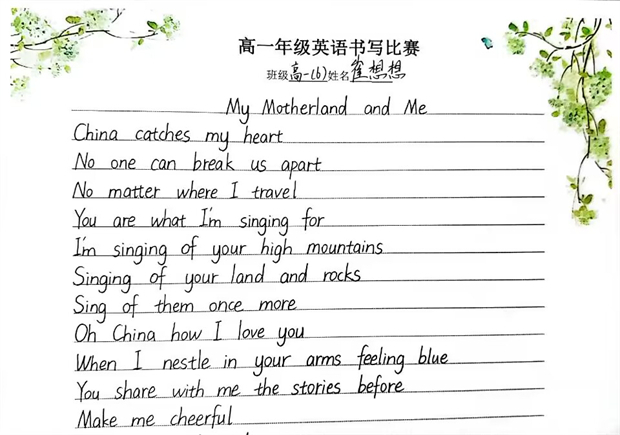 高一年级英语书写比赛
班级高一(6)姓名崔想想
My Motherland and Me
China catches my heart
No one can break us apart
No matter where I travel
You are what I'm singing for
I'm singing of your high mountains
Singing of your land and rocks
Sing of them once more
Oh China how I love you
When I nestle in your arms feeling blue
You share with me the stories before
Make me cheerful